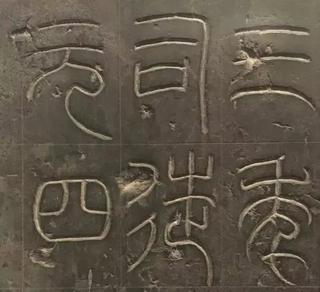 三年
司徒
元四